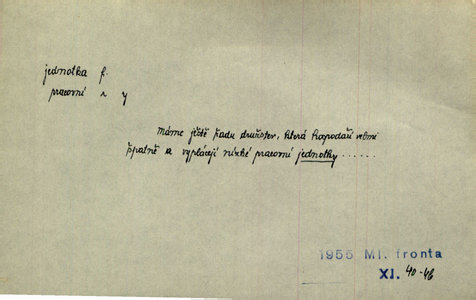 jednotka f.
pracovní
máme ještě řadu družstev, která hospodaří velmi
špatně a vyplácejí nízké pracovní jednotky ......
1955 Ml. fronta
XI. 40-46